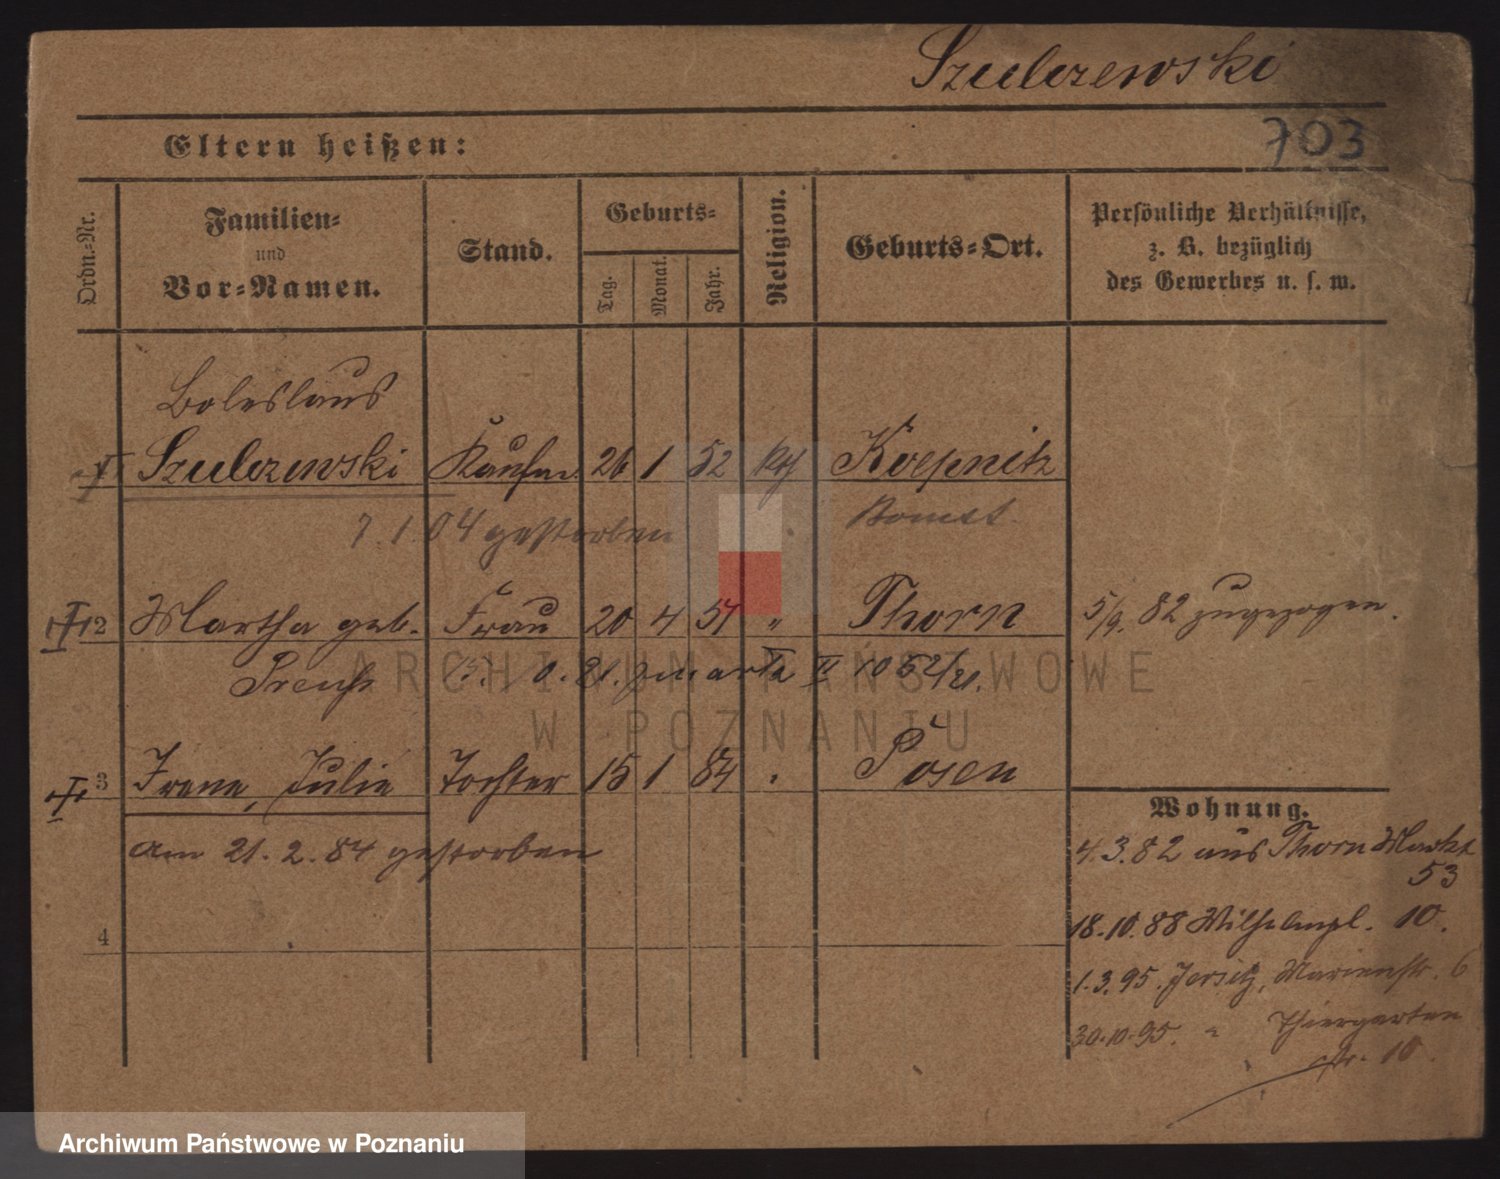 Szulczewski
703
Eltern heißen:
Ordn.-Nr.
Familien-
und
Vor-Namen.
Stand.
Geburts-
Tag.
Monat.
Jahr.
Religion.
Geburts-Ort.
Persönliche Verhältnisse,
z. B. bezüglich
des Gewerbes u. s. w.
Boleslaus
Szulczewski Kaufm. 26 1 52 kth Koepnitz
7.1.04 gestorben Bomst.
2 Martha geb. Frau 20 4 57 " Thorn 5/9. 82 zugezogen.
Preuß II
3 Irene, Julie Tochter 15 1 84 " Posen
am 21.2.84 gestorben
4
Wohnung.
4.3.82 aus Thorn Markt
53
18.10.88 Wilhelmpl. 10.
1.3.95. Jersitz, Marienstr. 6
30.10.95. " Thiergarten
str. 10.
ARCHIWUM PAŃSTWOWE
W POZNANIU
Archiwum Państwowe w Poznaniu